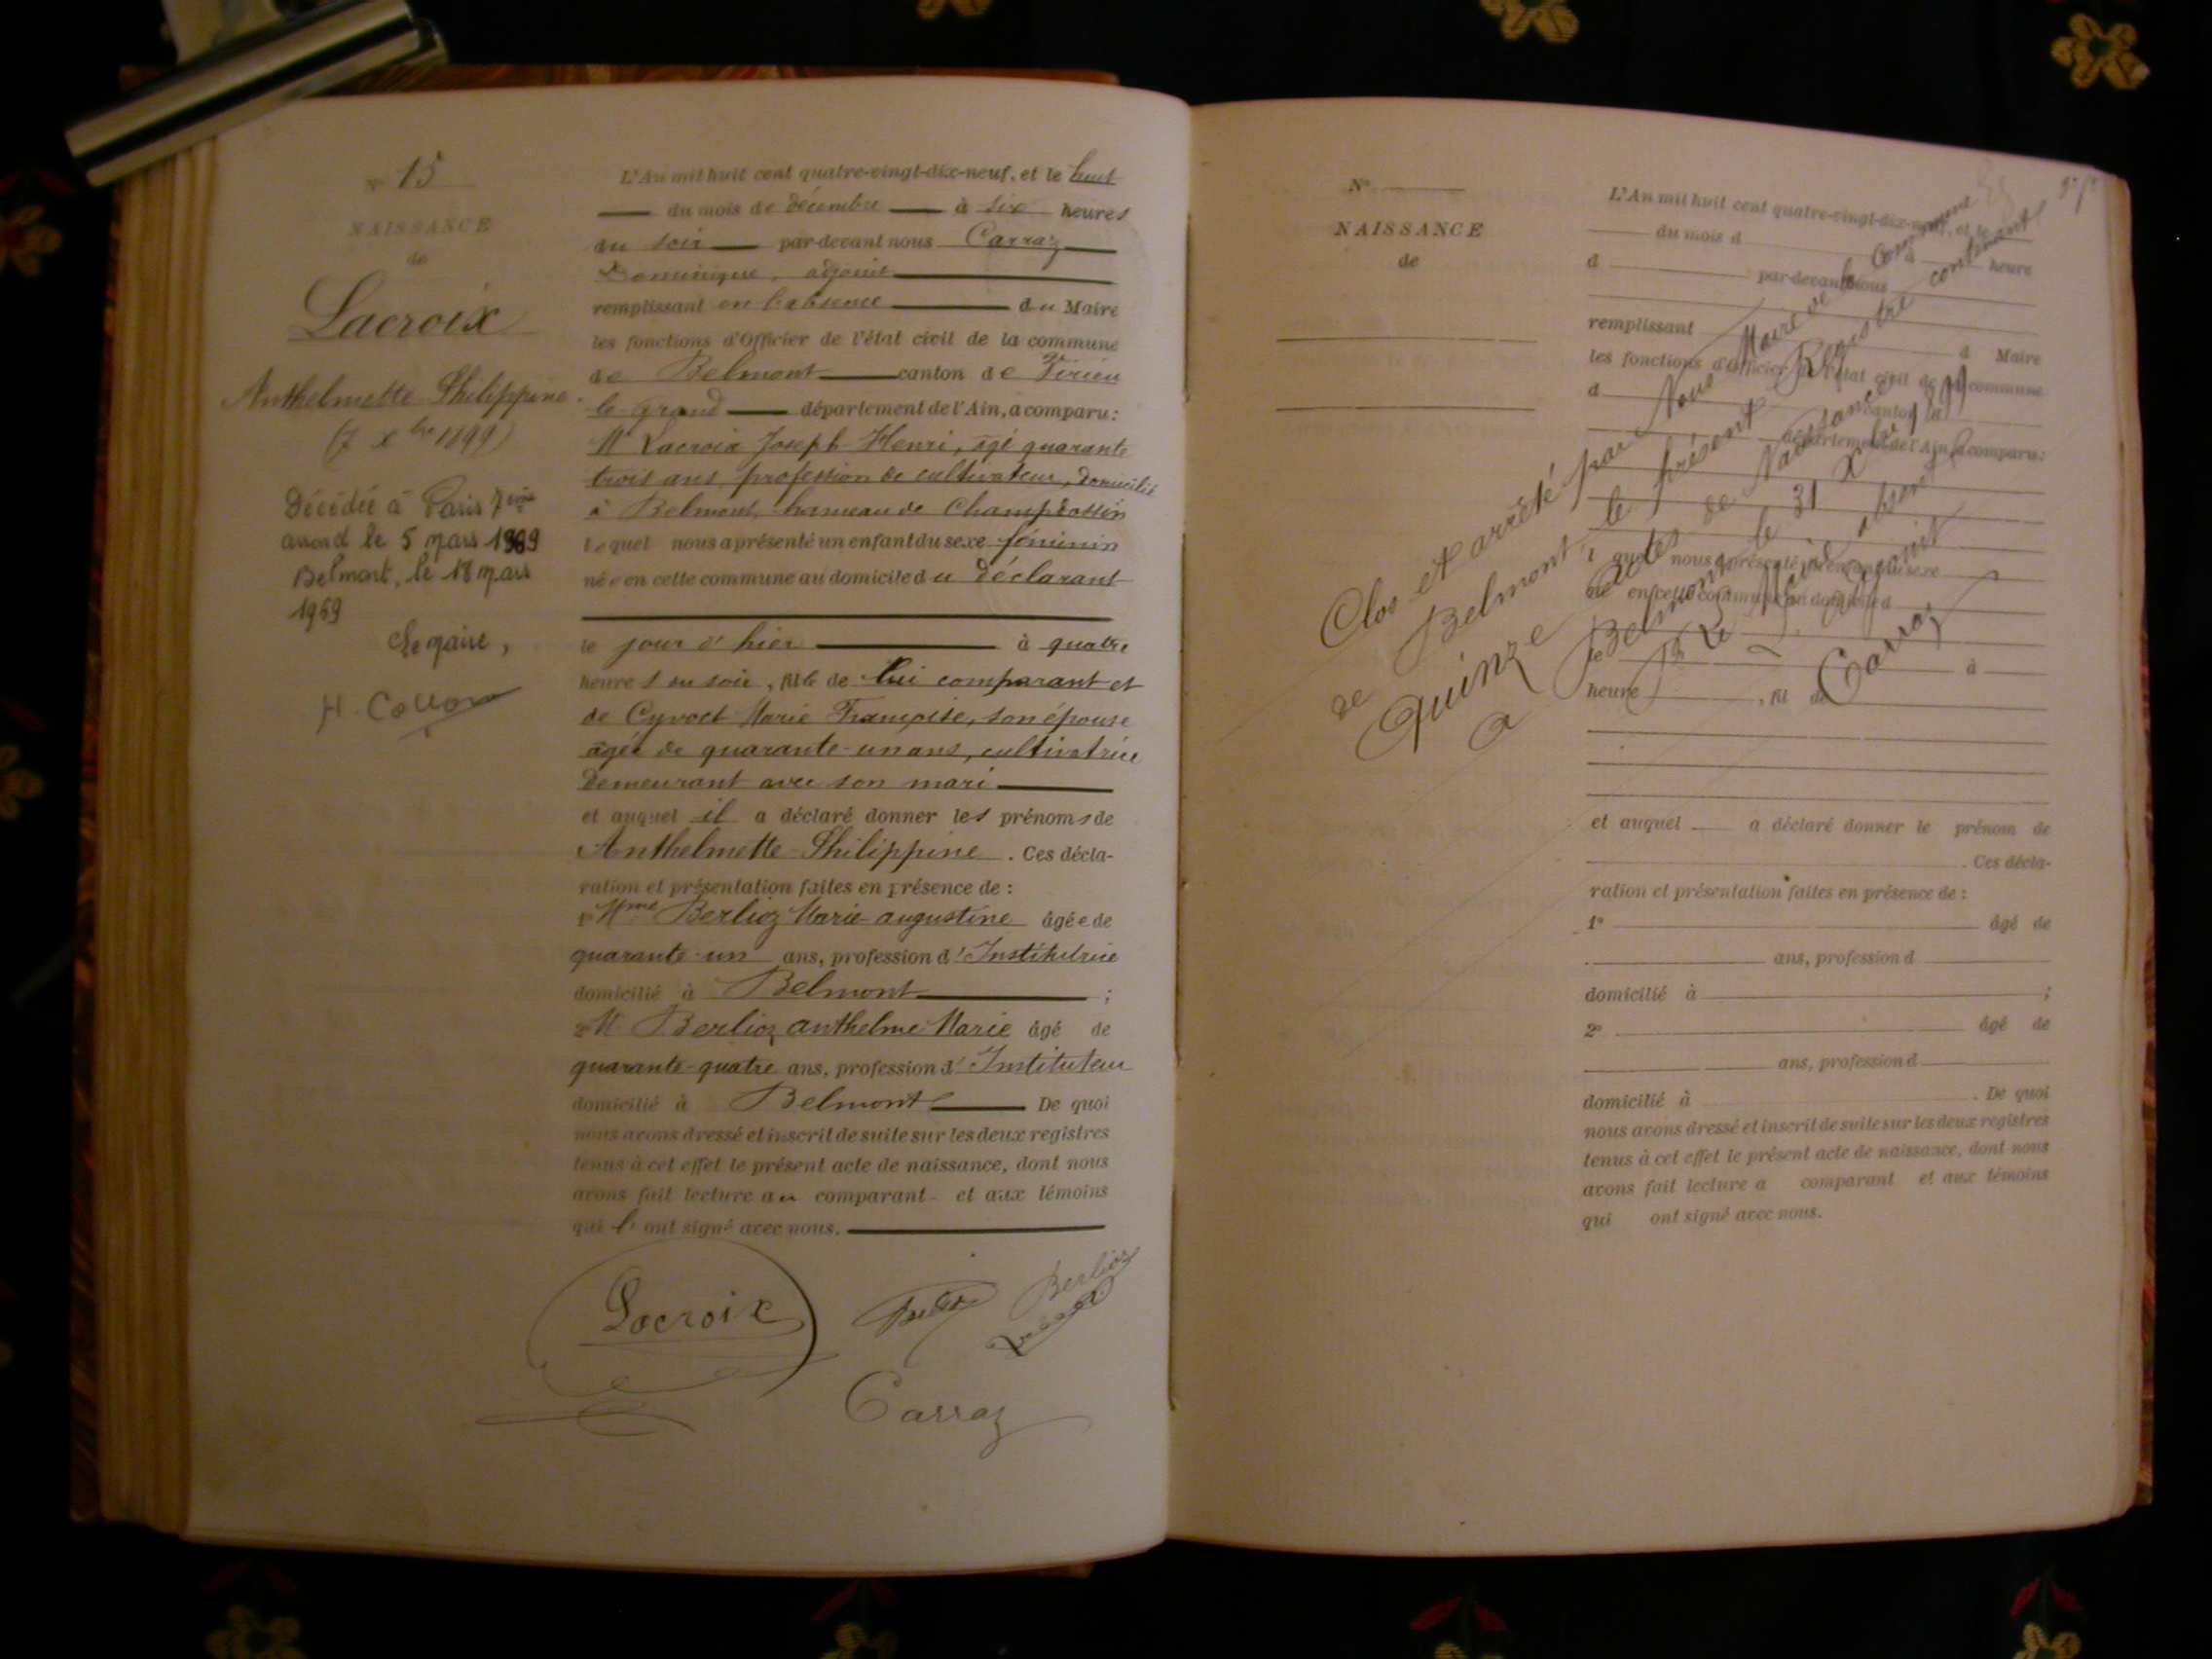 N° 15
NAISSANCE
de
Lacroix
Anthelmette Philippine
(7 xbre 1899)
Décédée à Paris 7ème
arrond le 5 mars 1969
Belmont, le 18 mars
1969
Le maire,
L'An mil huit cent quatre-vingt-dix-neuf, et le huit
du mois de décembre à six heures
du soir par-devant nous Carraz
Dominique, adjoint
remplissant en l'absence du Maire
les fonctions d'Officier de l'état civil de la commune
de Belmont canton de Virieu
le grand département de l'Ain, a comparu :
Mr Lacroix Joseph Henri, âgé quarante
trois ans, profession de cultivateur, domicilié
à Belmont, hameau de Champdossin
lequel nous a présenté un enfant du sexe féminin
née en cette commune au domicile du déclarant
le jour d'hier à quatre
heures du soir, fille de lui comparant et
de Cyvoct Marie Françoise, son épouse
âgée de quarante-un ans, cultivatrice
demeurant avec son mari
et auquel il a déclaré donner les prénoms de
Anthelmette Philippine. Ces décla-
ration et présentation faites en présence de :
1° Mme Berlioz Marie augustine âgée de
quarante-un ans, profession d'Institutrice
domicilié à Belmont ;
2° M Berlioz anthelme Marie âgé de
quarante-quatre ans, profession d'Instituteur
domicilié à Belmont De quoi
nous avons dressé et inscrit de suite sur les deux registres
tenus à cet effet le présent acte de naissance, dont nous
avons fait lecture au comparant et aux témoins
qui l'ont signé avec nous.
Lacroix
Berlioz
Carraz
N°
NAISSANCE
de
L'An mil huit cent quatre-vingt-dix-neuf, et le
du mois d à heure
d par-devant nous
remplissant d Maire
les fonctions d'Officier de l'état civil de la commune
d canton d
département de l'Ain, a comparu :
l quel nous a présenté un enfant du sexe
né en cette commune au domicile d
le à
heure , fil de
et auquel a déclaré donner le prénom de
. Ces décla-
ration et présentation faites en présence de :
1° âgé de
ans, profession d
domicilié à ;
2° âgé de
ans, profession d
domicilié à . De quoi
nous avons dressé et inscrit de suite sur les deux registres
tenus à cet effet le présent acte de naissance, dont nous
avons fait lecture a comparant et aux témoins
qui ont signé avec nous.
Clos et arrêté par Nous Maire de la Commune
de Belmont, le présent Registre contenant
Quinze actes de Naissances
a Belmont le 31 Xbre 1899
Le Maire absent
L'adjoint
Carraz